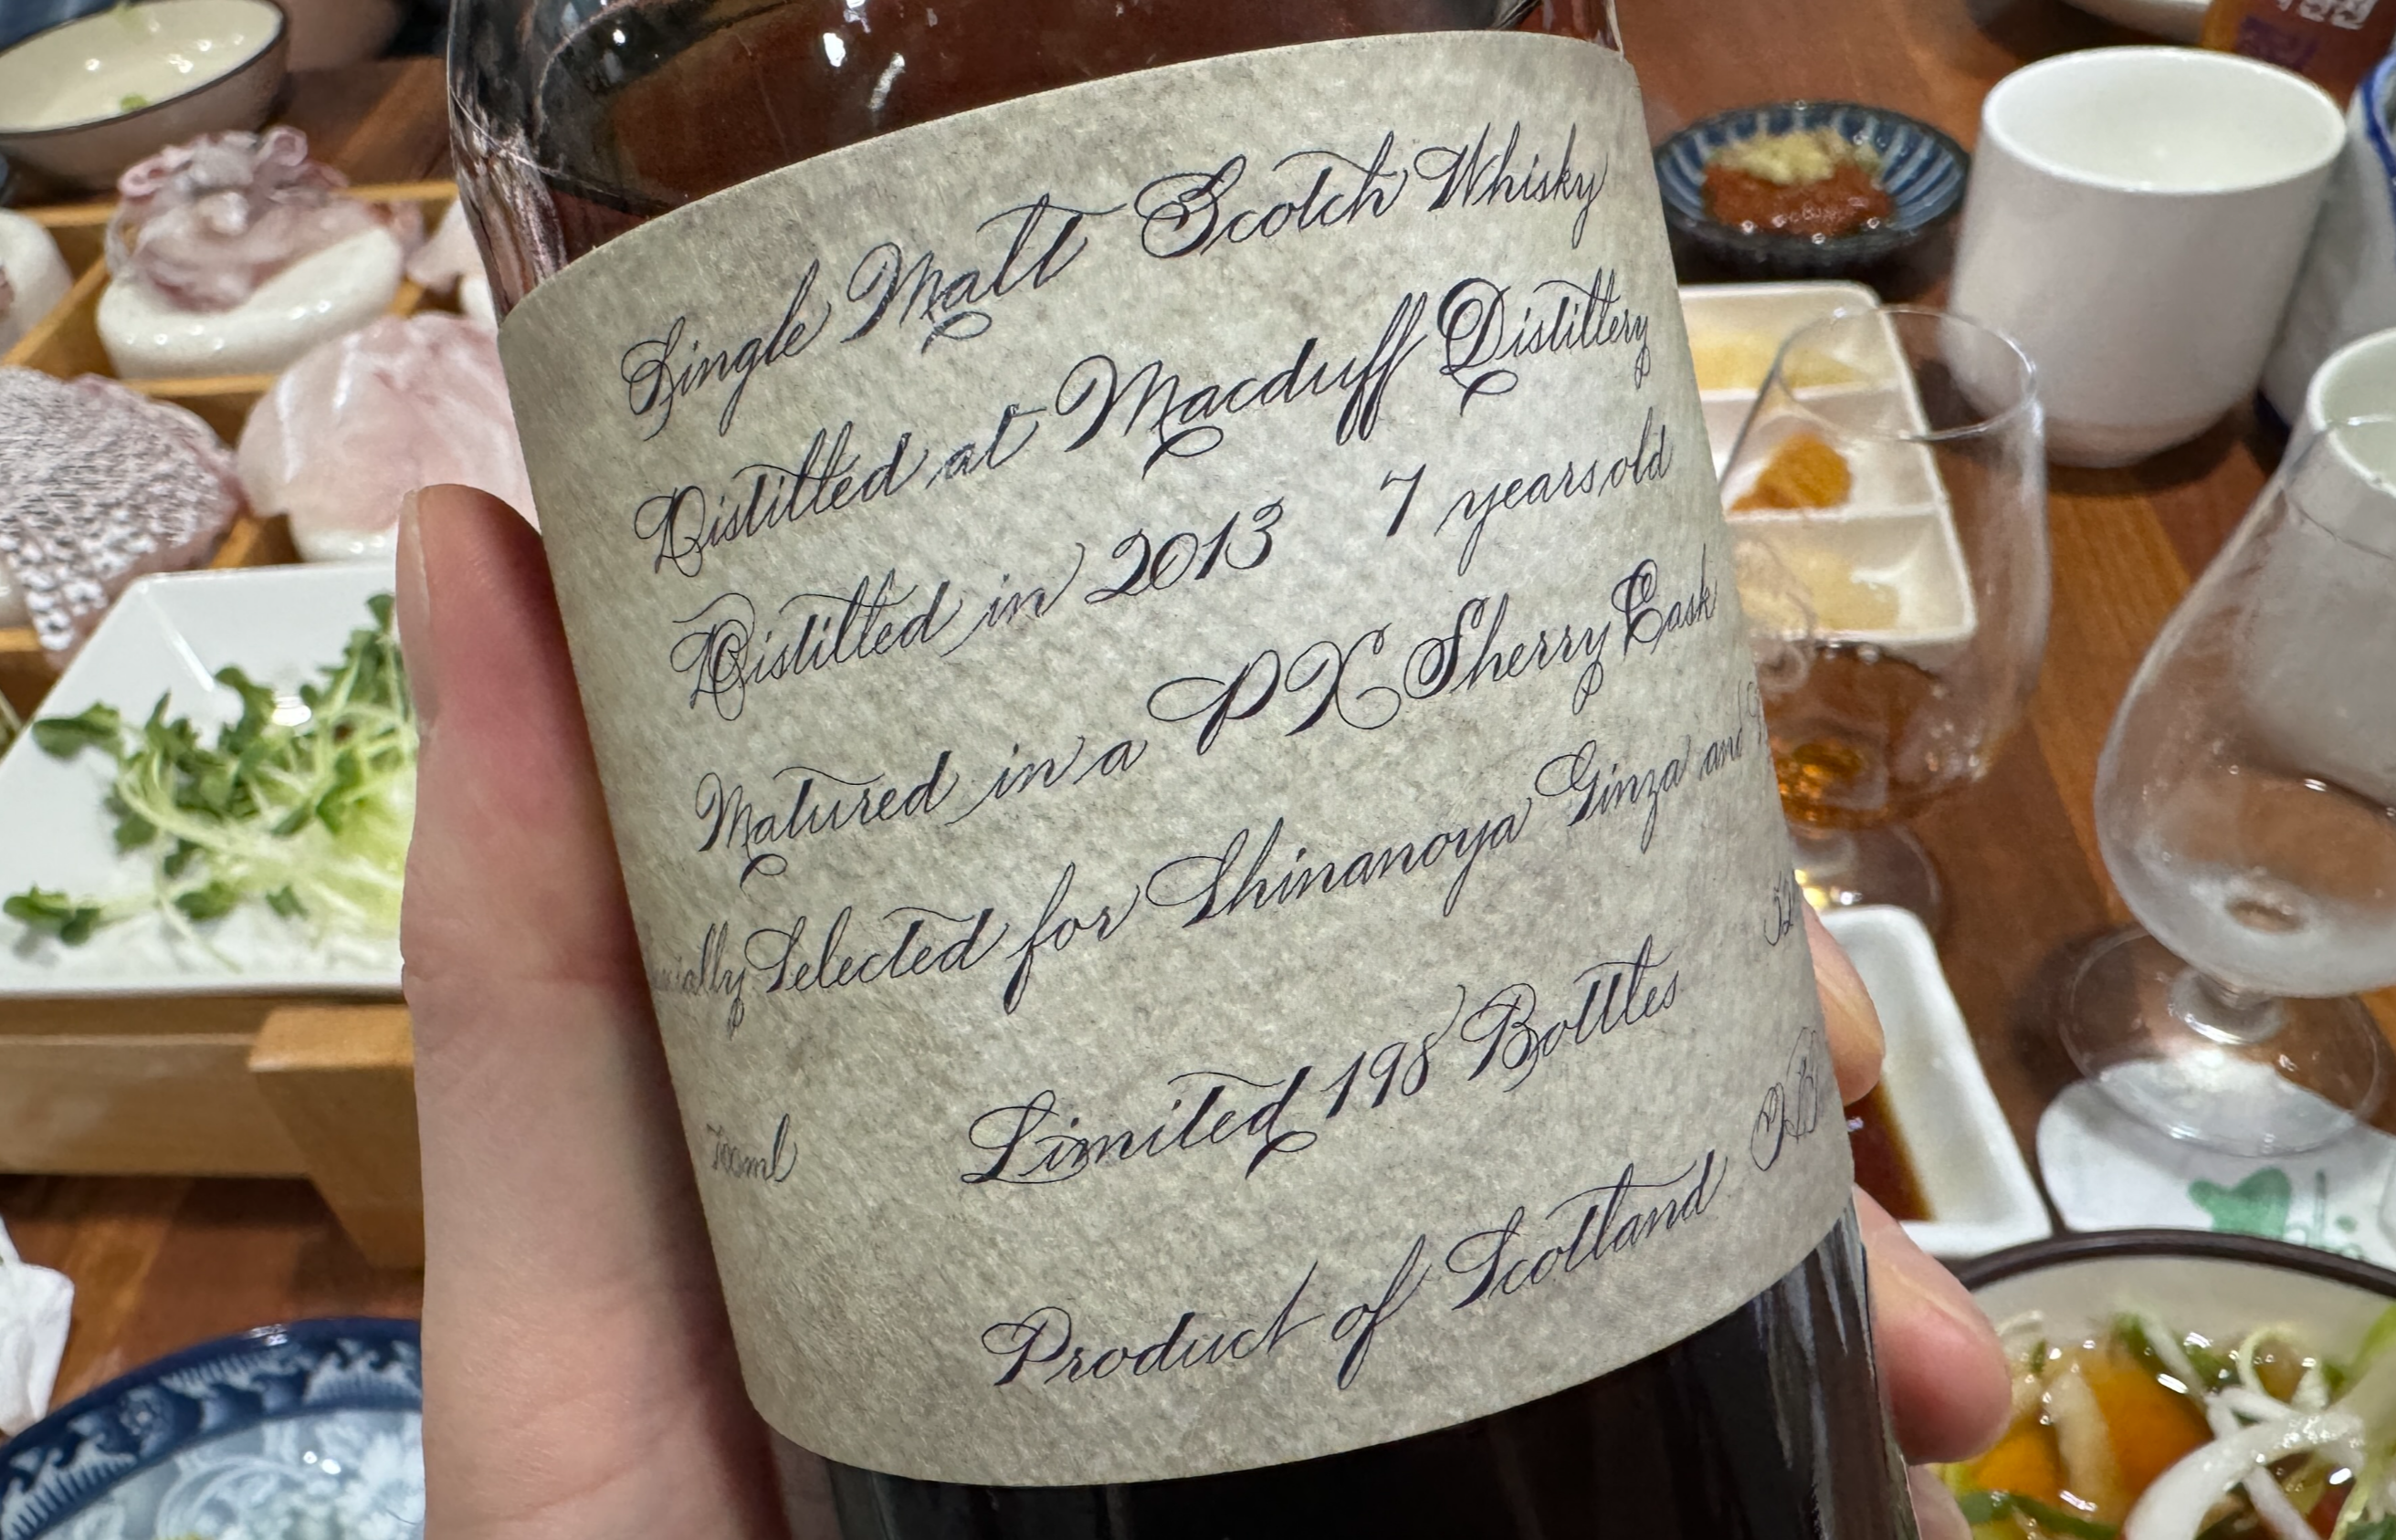 Single Malt Scotch Whisky
Distilled at Macduff Distillery
Distilled in 2013 7 years old
Matured in a PX Sherry Cask
Selected for Shinanoya Ginza and
Limited 198 Bottles
700ml
Product of Scotland